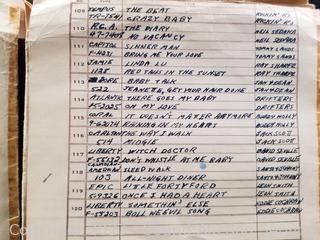 109 TEMPUS THE BEAT ROCKIN' R's
TR-7541 CRAZY BABY ROCKIN' R's
110 RCA THE DIARY NEIL SEDAKA
47-7408 NO VACANCY NEIL SEDAKA
111 CAPITOL SINNER MAN TOMMY SANDS
F-4231 BRING ME YOUR LOVE TOMMY SANDS
112 JAMIE LINDA LU RAY SHARPE
1128 RED SAILS IN THE SUNSET RAY SHARPE
113 DORE BABY TALK JAN & DEAN
522 JEANETTE, GET YOUR HAIR DONE JAN & DEAN
114 ATLANTIC THERE GOES MY BABY DRIFTERS
45-2025 OH MY LOVE DRIFTERS
115 CORAL IT DOESN'T MATTER ANYMORE BUDDY HOLLY
9-62074 RAINING IN MY HEART BUDDY HOLLY
116 CARLTON THE WAY I WALK JACK SCOTT
514 MIDGIE JACK SCOTT
117 LIBERTY WITCH DOCTOR DAVID SEVILLE
F-55132 DON'T WHISTLE AT ME BABY DAVID SEVILLE
118 AMERICAN SLEEP WALK SANTO & JOHNNY
103 ALL-NIGHT DINER SANTO & JOHNNY
119 EPIC
5-9326 ONCE I HAD A HEART
120 LIBERTY SOMETHIN' ELSE EDDIE COCHRAN
F-55203 BOLL WEEVIL SONG EDDIE COCHRAN